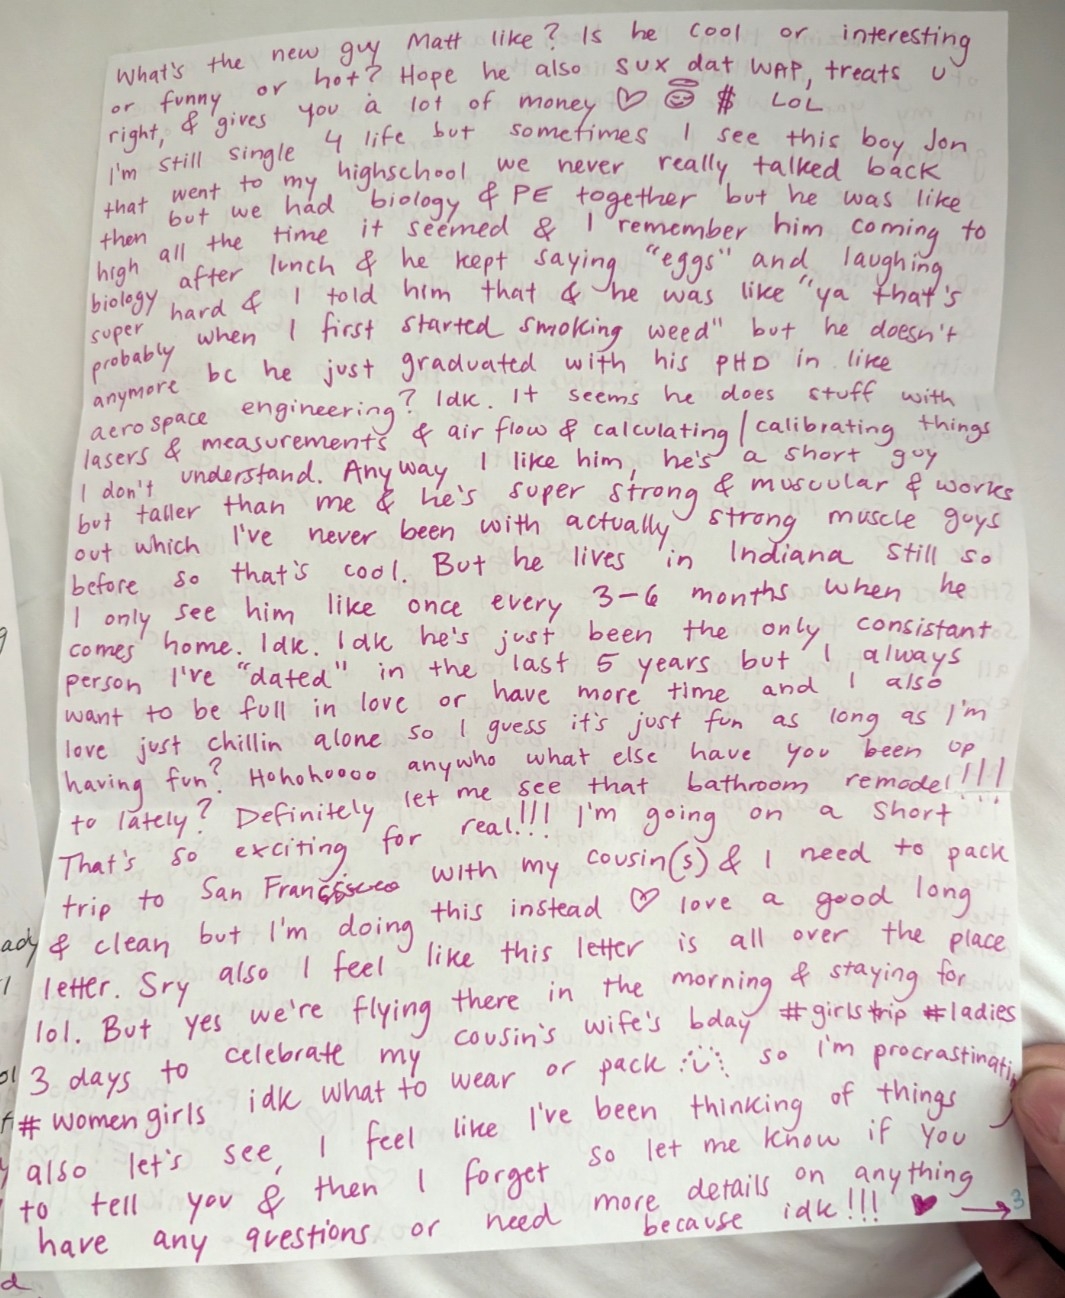 What's the new guy Matt like? Is he cool or interesting
or funny or hot? Hope he also sux dat WAP, treats u
right, & gives you a lot of money ♡ 😇 $ LOL
I'm still single 4 life but sometimes I see this boy Jon
that went to my highschool we never really talked back
then but we had biology & PE together but he was like
high all the time it seemed & I remember him coming to
biology after lunch & he kept saying "eggs" and laughing
super hard & I told him that & he was like "ya that's
probably when I first started smoking weed" but he doesn't
anymore bc he just graduated with his PHD in like
aerospace engineering? Idk. It seems he does stuff with
lasers & measurements & air flow & calculating/calibrating things
I don't understand. Anyway I like him, he's a short guy
but taller than me & he's super strong & muscular & works
out which I've never been with actually strong muscle guys
before so that's cool. But he lives in Indiana still so
I only see him like once every 3-6 months when he
comes home. Idk. Idk he's just been the only consistant
person I've "dated" in the last 5 years but I always
want to be full in love or have more time and I also
love just chillin alone so I guess it's just fun as long as I'm
having fun? Hohohoooo anywho what else have you been up
to lately? Definitely let me see that bathroom remodel!!!
That's so exciting for real!!! I'm going on a short
trip to San Francisco with my cousin(s) & I need to pack
& clean but I'm doing this instead ♡ love a good long
letter. Sry also I feel like this letter is all over the place
lol. But yes we're flying there in the morning & staying for
3 days to celebrate my cousin's wife's bday #girlstrip #ladies
#womengirls idk what to wear or pack so i'm procrastinatin
also let's see, I feel like I've been thinking of things
to tell you & then I forget so let me know if you
have any questions or need more details on anything
because idk!!! ♥ → 3